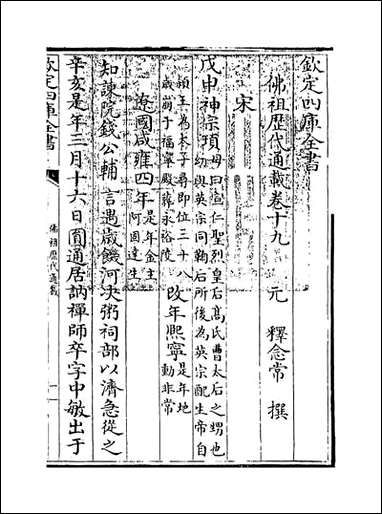 欽定四庫全書
佛祖歴代通載卷十九
元 釋念常 撰
宋
戊申神宗頊
母曰宣仁聖烈皇后髙氏曹太后之甥也
幼與英宗同鞠后所後為英宗配生帝自
頴王為太子尋即位三十八
歳崩于福寧殿葬永裕陵
改年熙寧
是年地
動非常
遼國咸雍四年
是年金主
阿固達生
知諫院錢公輔言遇歳饑河决粥祠部以濟急從之
辛亥是年三月十六日圎通居訥禪師卒字中敏出于
欽定四庫全書
佛祖歷代通載
一